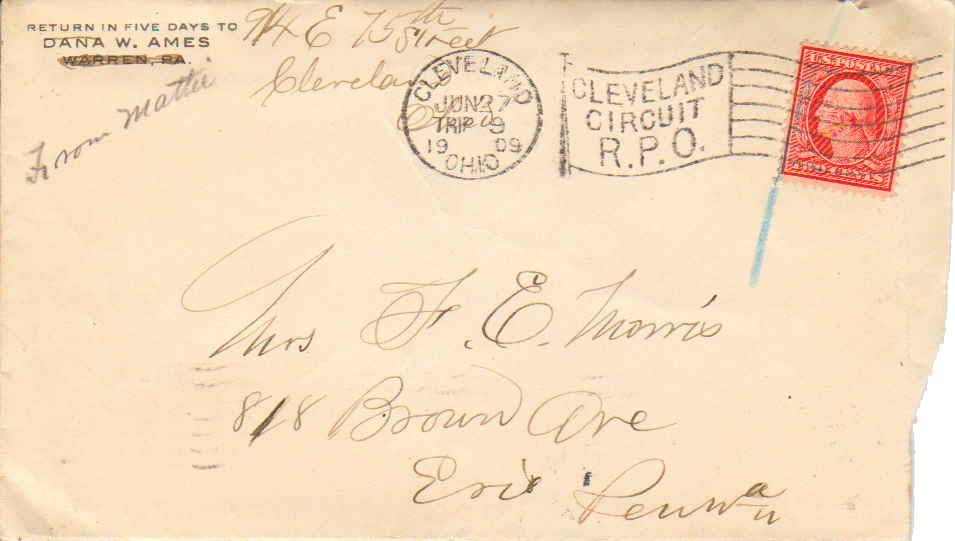 RETURN IN FIVE DAYS TO
DANA W. AMES
WARREN, PA.
E 75th
Street
Cleveland
Ohio
From Mattie
CLEVELAND
JUN 27
TRIP 9
19 09
OHIO
CLEVELAND
CIRCUIT
R.P.O.
U.S. POSTAGE
Mrs F. E. Morris
818 Brown Ave
Erie Penna